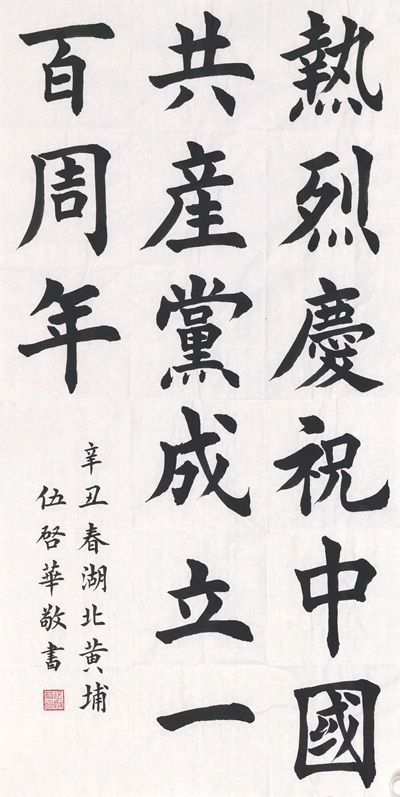 熱烈慶祝中國
共産黨成立一
百周年
辛丑春湖北黄埔
伍啓華敬書